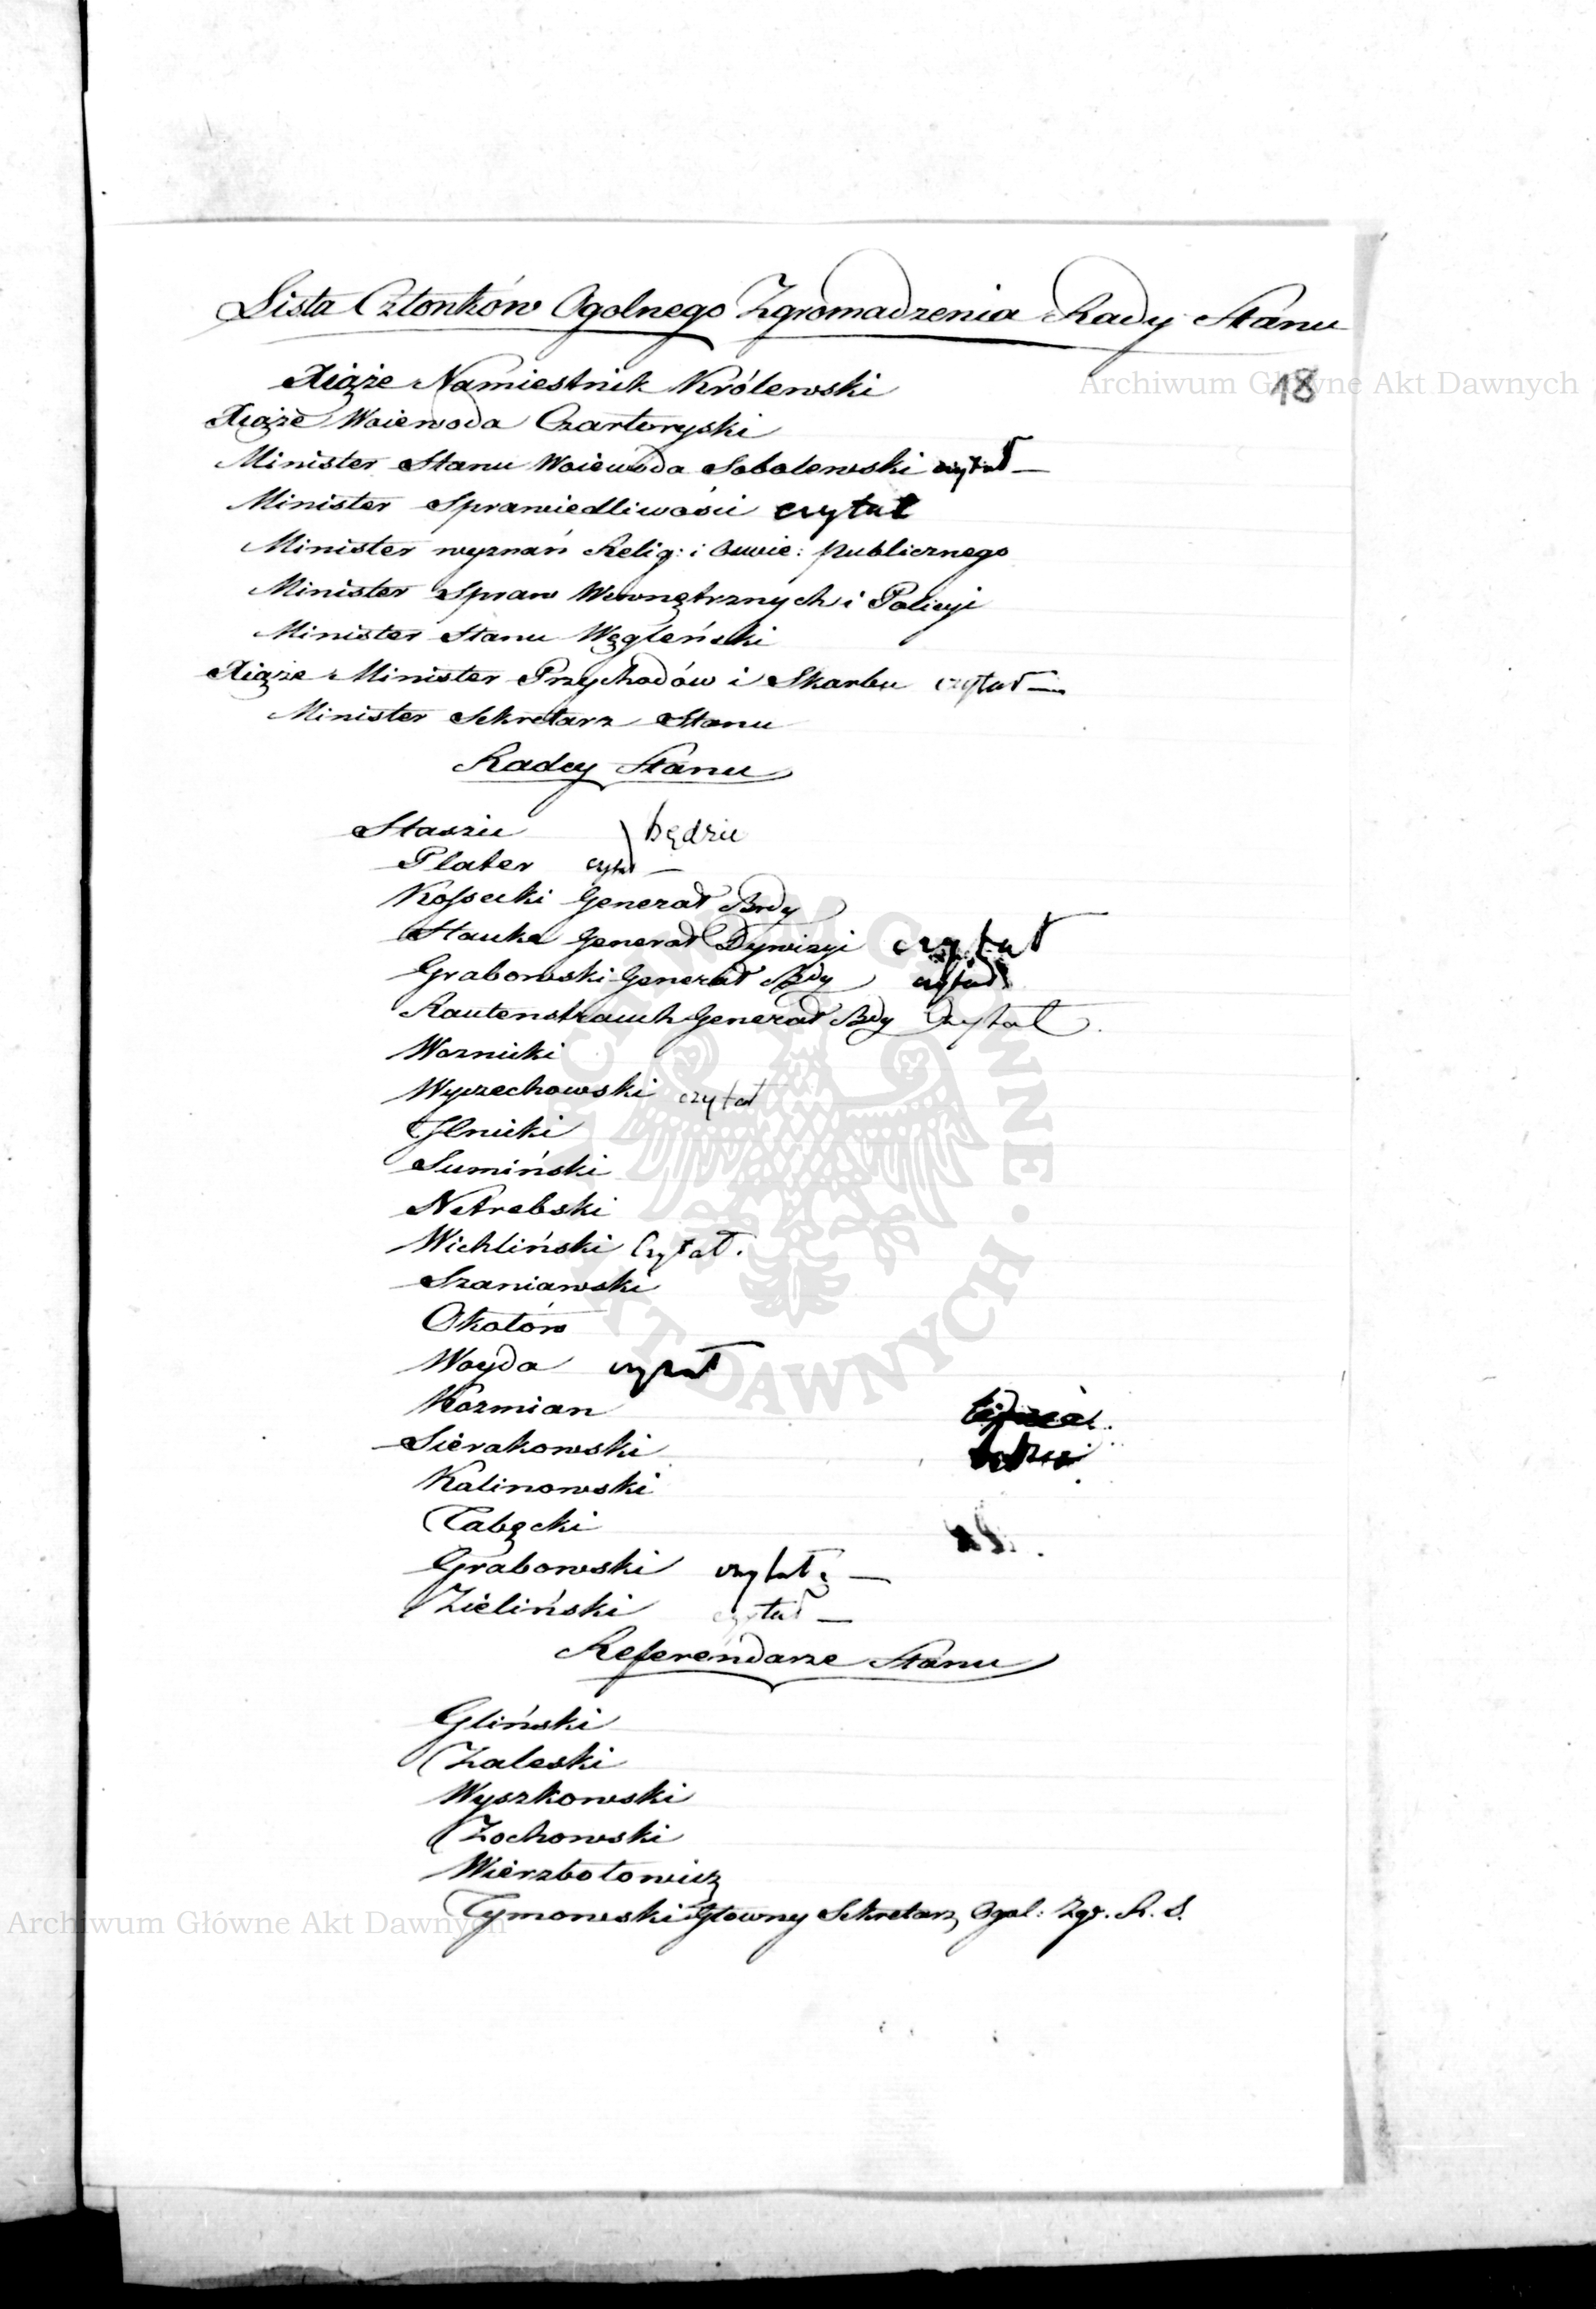 Lista Członków Ogolnego Zgromadzenia Rady Stanu
18
Xiąże Namiestnik Królewski
Xiąże Woiewoda Czartoryski
Minister Stanu Woiewoda Sobolewski czytał —
Minister Sprawiedliwości czytał
Minister wyznań Relig: i Oswie: publicznego
Minister Spraw Wewnętrznych i Policyi
Minister Stanu Węgleński
Xiąże Minister Przychodów i Skarbu czytał —
Minister Sekretarz Stanu
Radcy Stanu
Staszic będzie
Plater czytał —
Kossecki Generał Brdy
Hauke Generał Dywizyi czytał
Grabowski Generał Bdy czytał
Rautenstrauch Generał Bdy Czytał.
Woznicki
Wyczechowski czytał
Jlnicki
Sumiński
Netrebski
Wichliński Czytał.
Szaniawski
Okołow
Woyda czytał
Kozmian
Sierakowski
Kalinowski
Tabęcki
Grabowski czytał —
Zieliński czytał —
Referendarze Stanu
Gliński
Zaleski
Wyszkowski
Zochowski
Wierzbołowicz
Tymowski Głowny Sekretarz Ogol: Zgr. R. S.
Archiwum Główne Akt Dawnych
Archiwum Główne Akt Dawnych
ARCHIWUM GŁÓWNE · AKT DAWNYCH ·